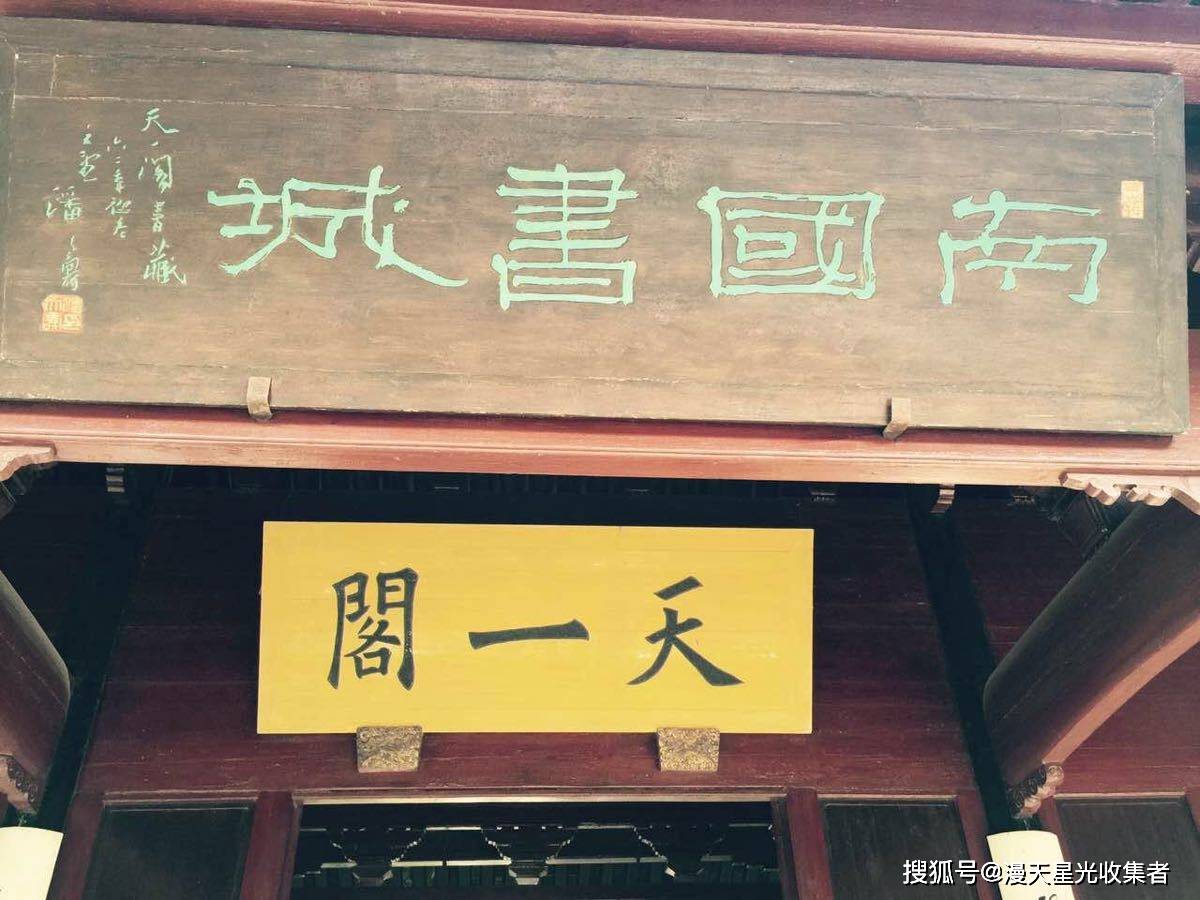 南國書城
天一閣書藏
六二年
潘天壽
天一閣
搜狐号@漫天星光收集者